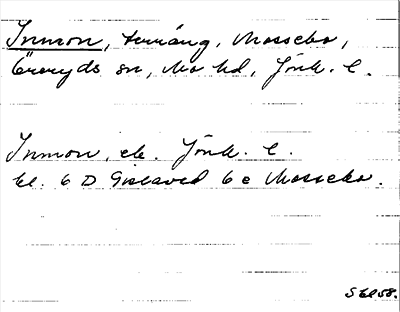 Inmon, terräng, Mossebo,
Öreryds sn, Mo hd, Jönk. l.
Inmon, ek. Jönk. l.
bl. 6 D Gislaved 6 e Mossebo.
S Ebl 58.